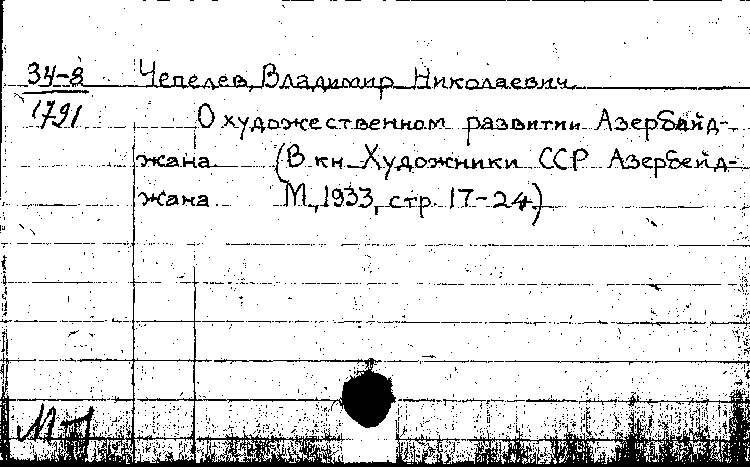 34-8 Чепелев, Владимир Николаевич.
1791 О художественном развитии Азербайд-
жана. (В кн. Художники ССР Азербейд-
жана. М., 1933, стр. 17-24.)